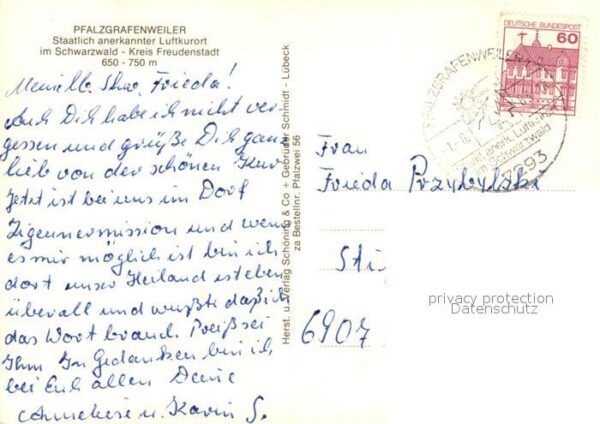 PFALZGRAFENWEILER
Staatlich anerkannter Luftkurort
im Schwarzwald - Kreis Freudenstadt
650 - 750 m
Meine lb. Frieda!
Auch Dich habe ich nicht ver
gessen und grüße Dich ganz
lieb von der schönen Kur
Jetzt ist bei uns im Dorf
Zigeunermission und wenn
es mir möglich ist bin ich
dort unser Heiland ist eben
überall und wußte daß ich
das Wort brauch Preis sei
Ihm In Gedanken bin ich
bei Euch allen Deine
Anneliese u. Karin S.
Herst. u. Verlag Schöning & Co + Gebrüder Schmidt - Lübeck
za Bestellnr. Pfalzwei 56
DEUTSCHE BUNDESPOST
60
PFALZGRAFENWEILER
anerk. Luftkurort
im Schwarzwald
7293
Frau
Frieda Przybylski
6907
privacy protection
Datenschutz